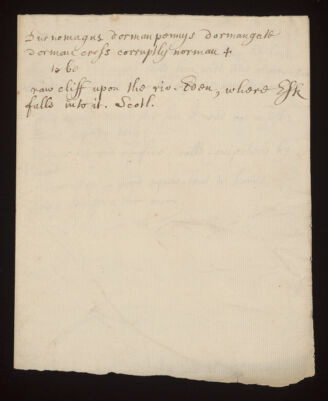 Durnomagus dormanpennys dormangate
dorman cross corruptly norman +
to be
raw cliff upon the riv. Eden, where Esk
falls into it. Scotl.